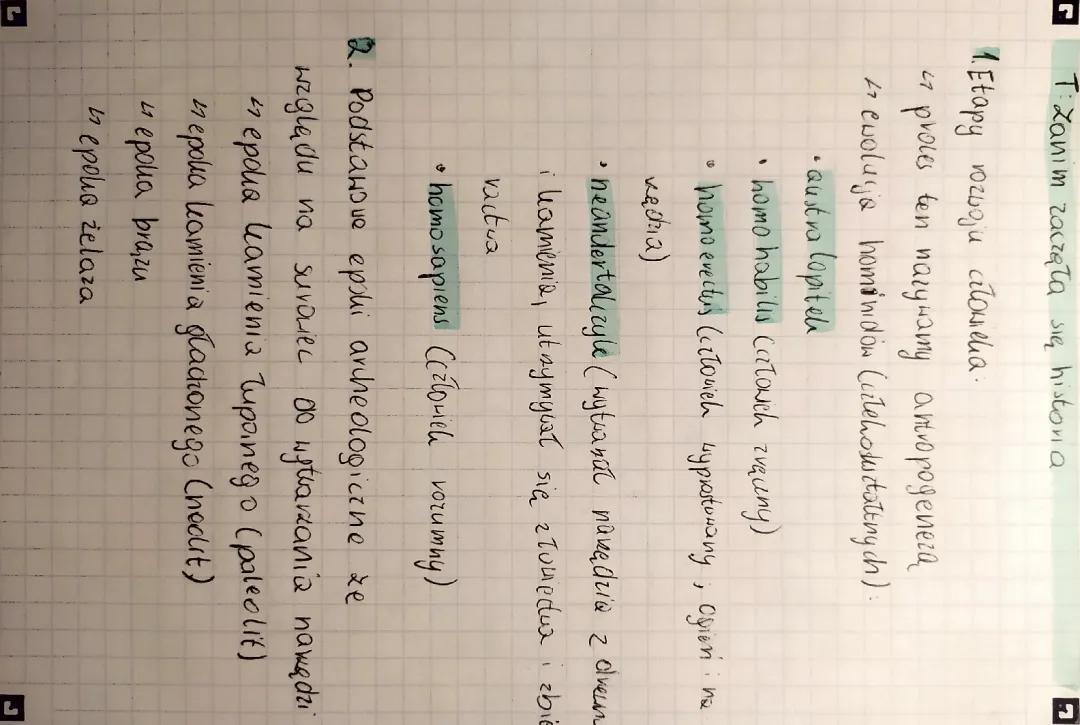 T: Zanim zaczęła się historia
1. Etapy rozwoju człowieka:
↳ proces ten nazywamy antropogenezą
↳ ewolucja hominidów (człekokształtnych):
• australopitek
• homo habilis (człowiek zręczny)
• homo erectus (człowiek wyprostowany, ogień i na
rzędzia)
• neandertalczyk (wytwarzał narzędzia z drewn
i kamienia, utrzymywał się z łowiectwa i zbie
ractwa
• homo sapiens (człowiek rozumny)
2. Podstawowe epoki archeologiczne ze
względu na surowiec do wytwarzania narzędzi
↳ epoka kamienia łupanego (paleolit)
↳ epoka kamienia gładzonego (neolit)
↳ epoka brązu
↳ epoka żelaza